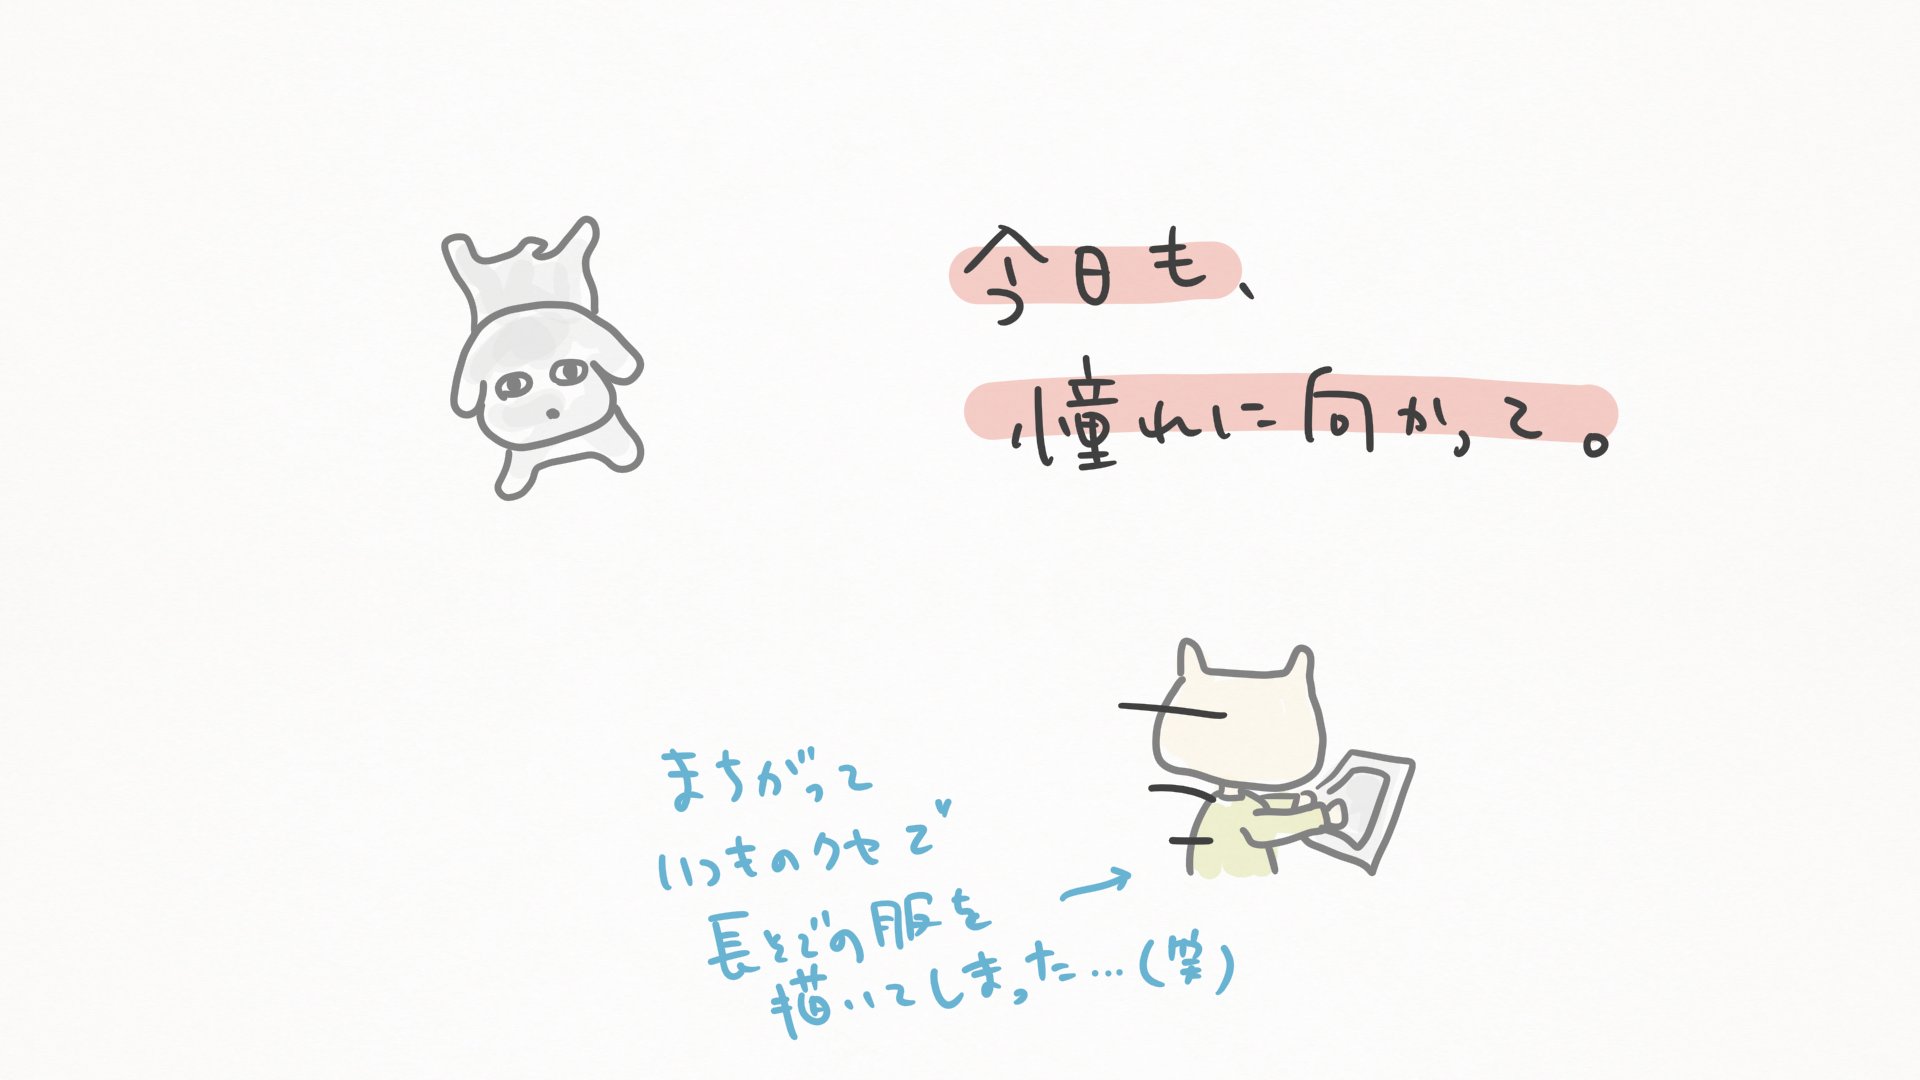 今日も、
憧れに向かって。
まちがって
いつものクセで♥
長そでの服を
描いてしまった…(笑)